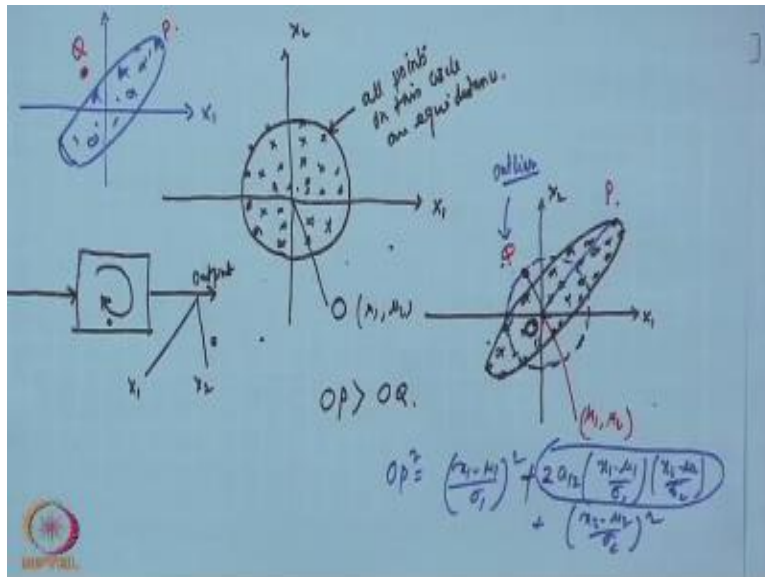 Q P.
x₁
x₂
all points
on this circle
are equidistance.
x₁
O (μ₁, μ₂)
output
x₁ x₂
OP > OQ.
outlier
x₂
P.
Q
O
x₁
(μ₁, μ₂)
OP² = (x₁-μ₁/σ₁)² + 2a₁₂ (x₁-μ₁/σ₁) (x₂-μ₂/σ₂)
+ (x₂-μ₂/σ₂)²